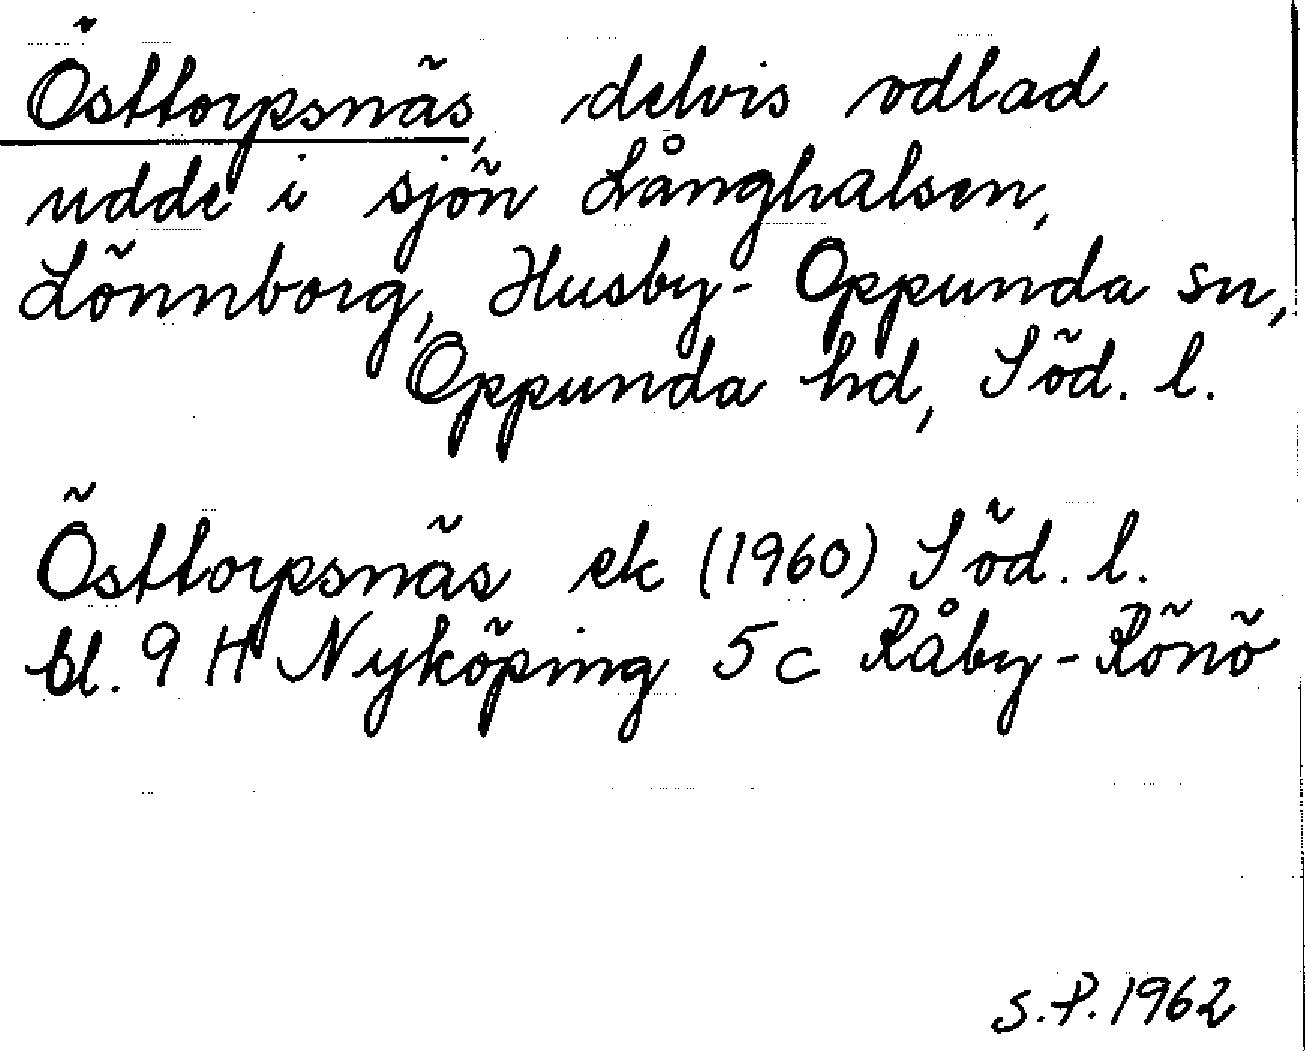 Östtorpsnäs, delvis odlad
udde i sjön Långhalsen,
Lönnborg, Husby-Oppunda sn,
Oppunda hd, Söd. l.
Östtorpsnäs ek (1960) Söd. l.
bl. 9 H Nyköping 5 c Råby-Rönö
S.P. 1962